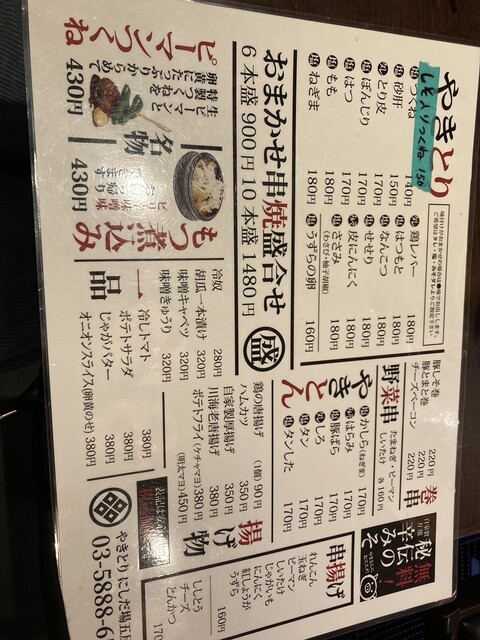 やきとり
しそ入りつくね 150
塩 つくね 140円
塩 砂肝 150円
塩 とり皮 170円
塩 ぼんじり 170円
塩 はつ 170円
塩 もも 180円
塩 ねぎま 180円
鶏レバー 180円
塩 はつもと 180円
塩 なんこつ 180円
塩 せせり 180円
皮にんにく 180円
塩 ささみ 180円
(わさび・柚子胡椒)
塩 うずらの卵 160円
おまかせ串焼盛合せ
盛
6本盛 900円 10本盛 1480円
ピーマンつくね
生ピーマンと
特製つくねを
卵黄にたっぷりからめて
430円
名物
もつ煮込み
ピリ辛味噌味
430円
巻串
豚しそ巻 220円
豚とまと巻 220円
チーズベーコン 220円
野菜串
たまねぎ・ピーマン
しいたけ 各160円
やきとん
かしら(ねぎ塩) 170円
塩 はらみ 170円
塩 豚ばら 170円
しろ 170円
塩 タン 170円
塩 タンした 170円
一品
冷奴 280円
胡瓜一本漬け 320円
味噌キャベツ 320円
味噌きゅうり 320円
冷しトマト 380円
ポテトサラダ 380円
じゃがバター 380円
オニオンスライス(卵黄のせ) 380円
揚げ物
鶏の唐揚げ (1個)90円
ハムカツ 350円
自家製厚揚げ 350円
川海老唐揚げ 380円
ポテトフライ(ケチャマヨ)380円
(明太マヨ)450円
無料!
秘伝の
辛みそ
串揚げ
れんこん
玉ねぎ
ピーマン
しいたけ
じゃがいも
にんにく
紅しょうが
うずら
160円
ししとう
チーズ
とんかつ
170
やきとりにしだ場 五反
03-5888-6